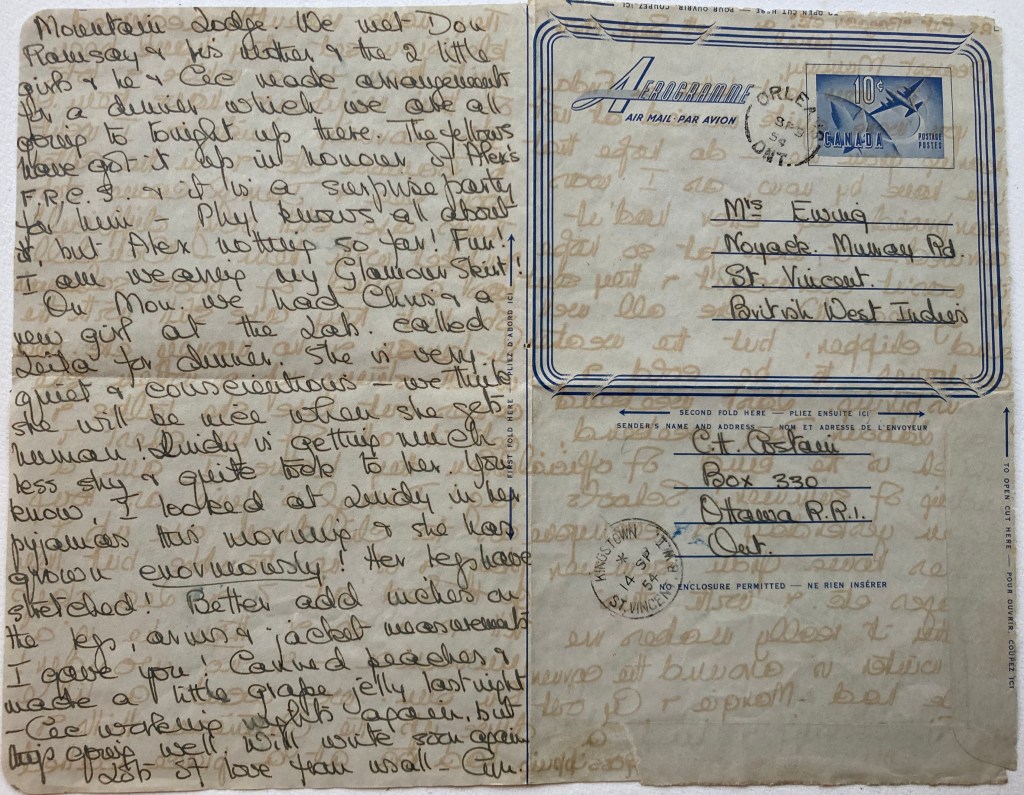 Mountain Lodge We met Don
Ramsay & his mother & the 2 little
girls & he & Cec made arrangements
for a dinner which we are all
going to tonight up there. The fellows
have got it up in honour of Alex's
F.R.C.S. & it is a surprise party
for him - Phyl knows all about
it, but Alex nothing so far! Fun!
I am wearing my Glamour Skirt!
On Mon. we had Chris & a
new girl at the Lab. called
Leila for dinner. She is very
quiet & conscientious - we think
she will be nice when she gets
human! Lindy is getting much
less shy & quite took to her. You
know, I looked at Lindy in her
pyjamas this morning & she has
grown enormously! Her legs have
stretched! Better add inches on
the legs, arms & jacket measurements
I gave you! Canned peaches &
made a little grape jelly last night
- Cec working nights again, but
going well. Will write soon again
Lots of love from us all -
TO OPEN CUT HERE — POUR OUVRIR, COUPEZ ICI
AEROGRAMME
AIR MAIL · PAR AVION
ORLEANS
SP 9
54
ONT.
10¢
CANADA
POSTAGE
POSTES
Mrs Ewing
Noyack. Murray Rd.
St. Vincent.
British West Indies
FIRST FOLD HERE — PLIEZ D'ABORD ICI
SECOND FOLD HERE — PLIEZ ENSUITE ICI
SENDER'S NAME AND ADDRESS — NOM ET ADRESSE DE L'ENVOYEUR
C.H.
Box 330
Ottawa R.R.1.
Ont.
KINGSTOWN
14 SP
54
ST. VINCENT
NO ENCLOSURE PERMITTED — NE RIEN INSÉRER
TO OPEN CUT HERE — POUR OUVRIR, COUPEZ ICI